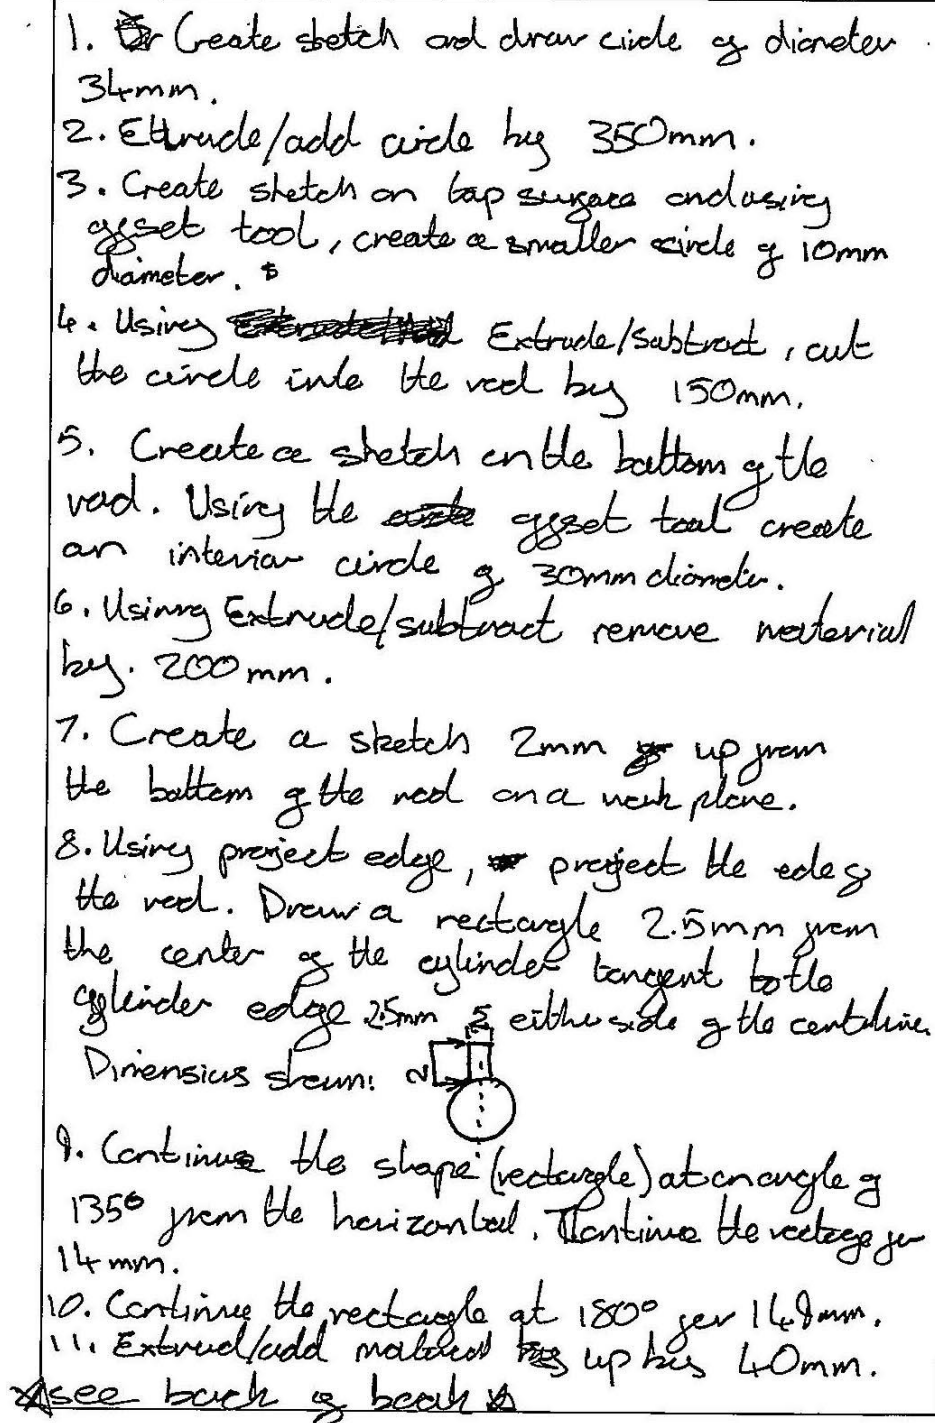 1. Create sketch and draw circle of diameter
34mm.
2. Extrude/add circle by 350mm.
3. Create sketch on top surface and using
offset tool, create a smaller circle of 10mm
diameter.
4. Using Extrude/Subtract, cut
the circle into the rod by 150mm.
5. Create a sketch on the bottom of the
rod. Using the offset tool create
an interior circle of 30mm diameter.
6. Using Extrude/subtract remove material
by. 200mm.
7. Create a sketch 2mm up from
the bottom of the rod on a work plane.
8. Using project edge, project the ede of
the rod. Draw a rectangle 2.5mm from
the center of the cylinder tangent to the
cylinder edge 2.5mm either side of the centerline.
5
Dimensions shown: 2
9. Continue the shape (rectangle) at an angle of
135° from the horizontal. Continue the rectage for
14mm.
10. Continue the rectagle at 180° for 14.8mm.
11. Extrud/add material up by 40mm.
☆see back of book☆